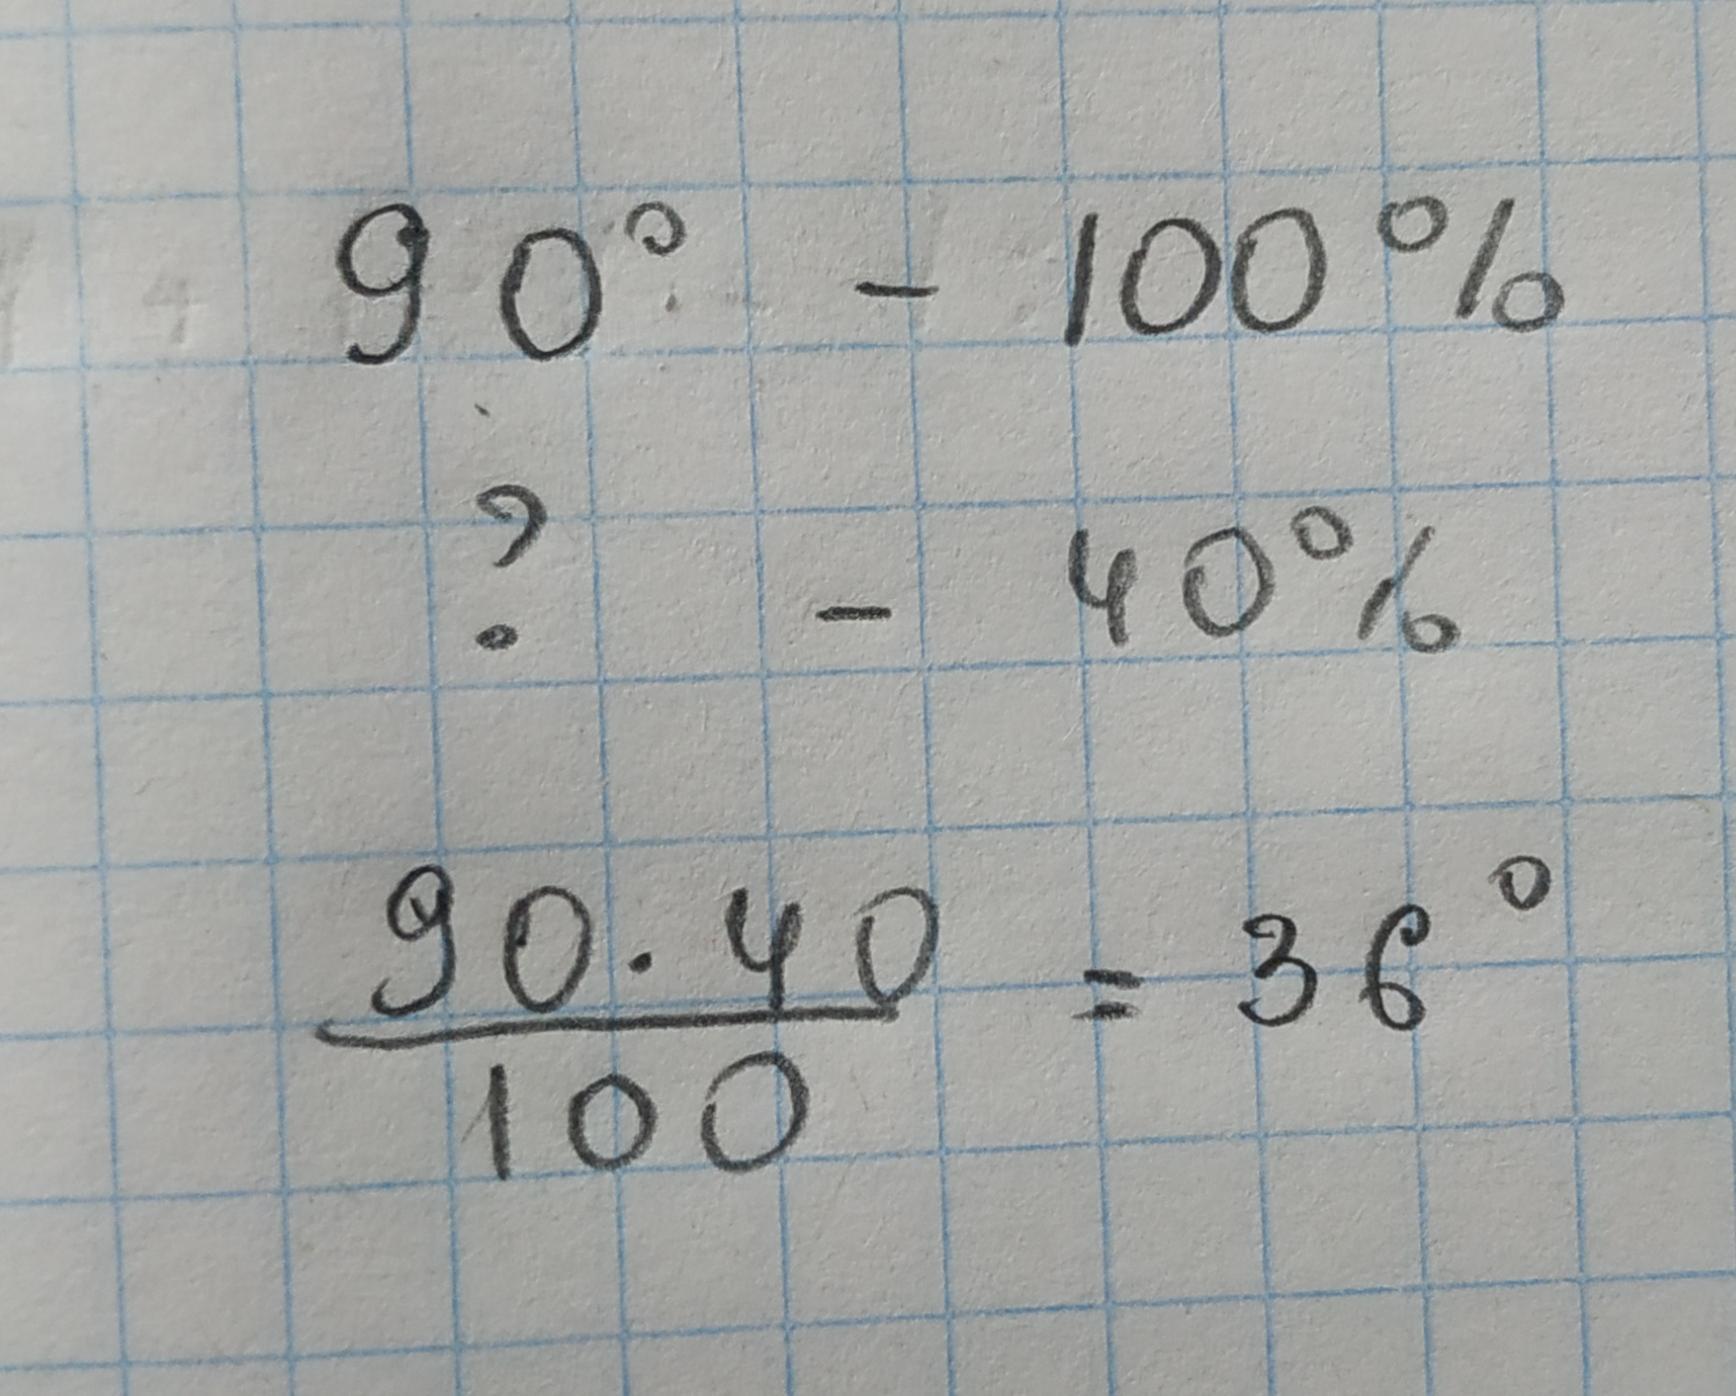 90° - 100%
? - 40%
90·40
100
= 36°